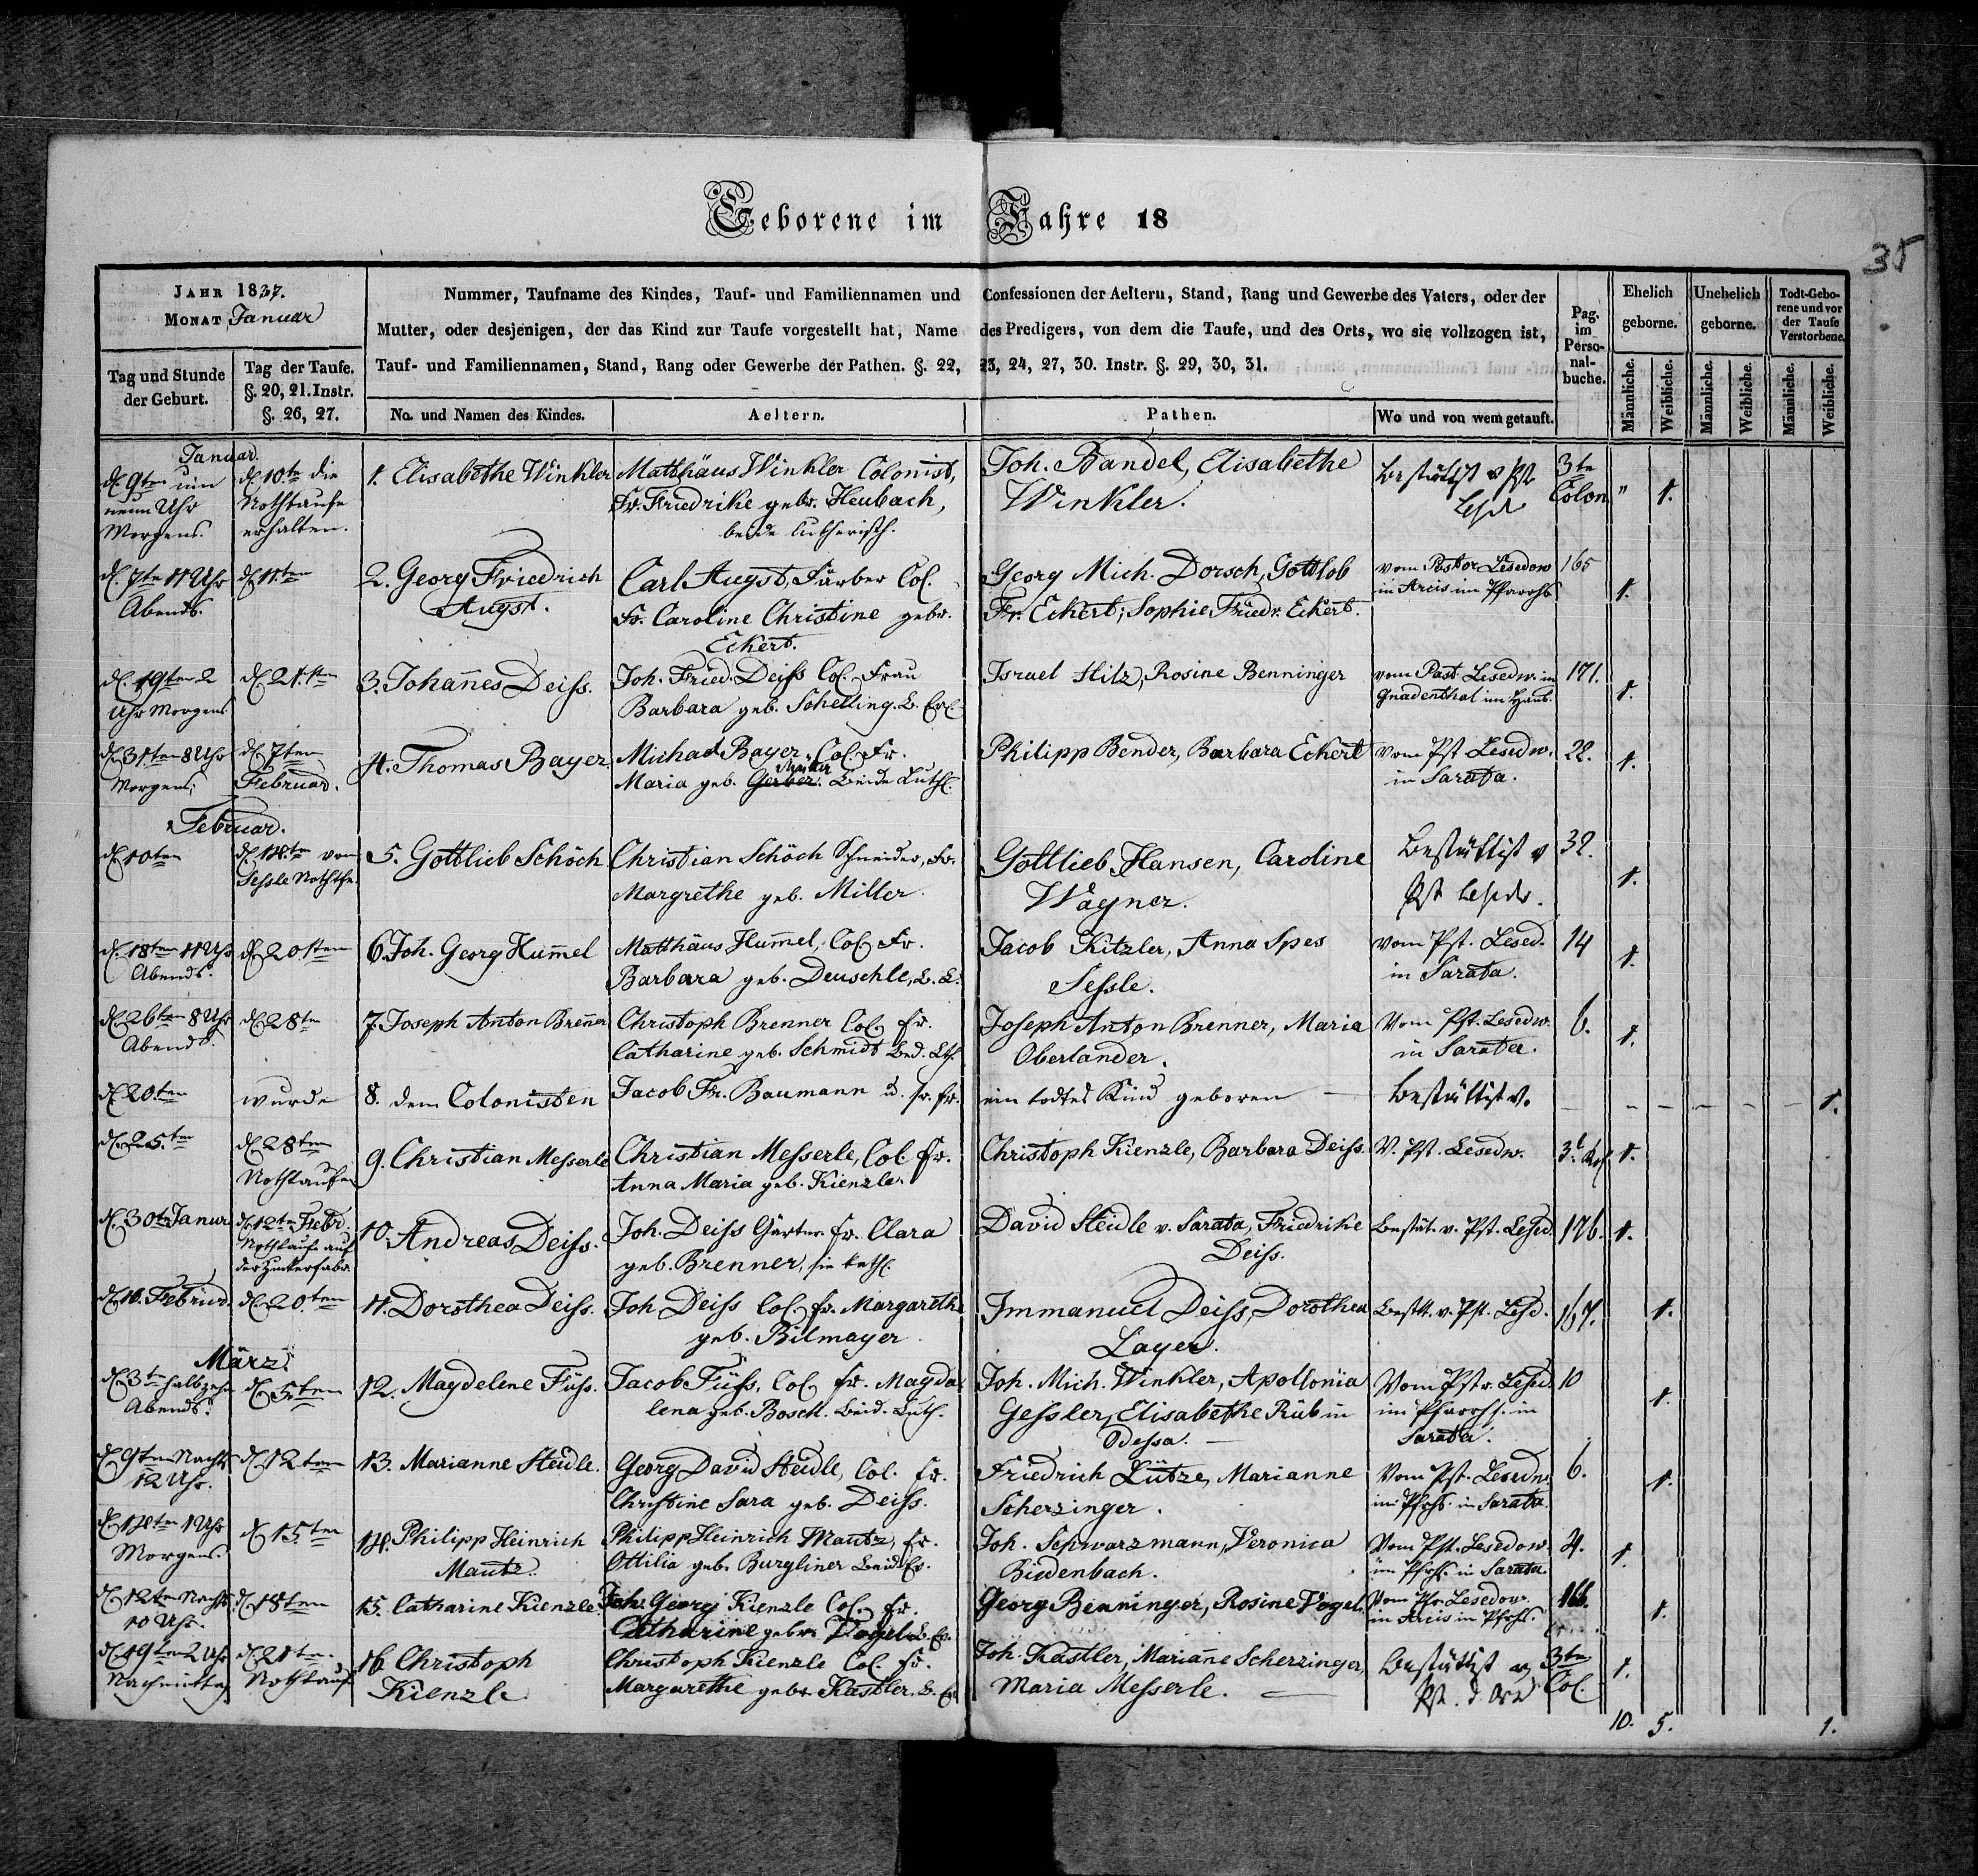 Geborene im Jahre 18
35
JAHR 1837.
MONAT Januar
Nummer, Taufname des Kindes, Tauf- und Familiennamen und Confessionen der Aeltern, Stand, Rang und Gewerbe des Vaters, oder der
Mutter, oder desjenigen, der das Kind zur Taufe vorgestellt hat, Name des Predigers, von dem die Taufe, und des Orts, wo sie vollzogen ist,
Tauf- und Familiennamen, Stand, Rang oder Gewerbe der Pathen. §. 22, 23, 24, 27, 30. Instr. §. 29, 30, 31.
Pag. im Perso- nal- buche.
Ehelich geborne.
Unehelich geborne.
Todt-Gebo- rene und vor der Taufe Verstorbene.
Tag und Stunde der Geburt.
Tag der Taufe. §. 20, 21. Instr. §. 26, 27.
No. und Namen des Kindes.
Aeltern.
Pathen.
Wo und von wem getauft.
Männliche. Weibliche. Männliche. Weibliche. Männliche. Weibliche.
Januar.
d. 9ten um d. 10.te die 1. Elisabethe Winkler Matthäus Winkler Colonist, Joh. Bandel, Elisabethe 3te
neun Uhr Nothtaufe Fr. Friedrike gebr. Heubach, Winkler. Colon " 1.
Morgens. erhalten. beide lutherisch.
d. 7te 11 Uhr d. 11ten 2. Georg Friedrich Carl Augst, Färber Col. Georg Mich. Dorsch, Gottlob vom Pastor Lesedow 165
Abends. Augst. Fr. Caroline Christine gebr. Fr. Eckert; Sophie Friedr. Eckert. in Arcis im Pfarrhs 1.
Eckert.
d. 19ten 2 d. 21.ten 3. Johannes Deiss. Joh. Fried. Deiss Col. Frau Israel Hilz, Rosine Benninger vom Past Lesedw. in 171.
Uhr Morgens Barbara geb. Schelling. Gnadenthal im Haus. 1.
d. 31.ten 8 Uhr d. 7ten 4. Thomas Bayer. Michael Bayer Col. Fr. Philipp Bender, Barbara Eckert vom Pst Lesedw. 22. 1.
Morgens; Februar. Maria geb. Gerber. Beide Luth. in Sarata.
Februar.
d. 10ten d. 14.ten von 5. Gottlieb Schöch Christian Schöch Schneider, Fr. Gottlieb Hansen, Caroline 32.
Sessle Nothtfe. Margrethe geb. Miller. Wagner. 1.
d. 18ten 11 Uhr d. 20sten 6. Joh. Georg Hummel Matthäus Hummel, Col. Fr. Jacob Kitzler, Anna Spes vom Pst. Lesed. 14
Abends. Barbara geb. Deuschle, B. L. Sessle. in Sarata. 1.
d. 26ten 8 Uhr d. 28ten 7. Joseph Anton Brenner Christoph Brenner Col. fr. Joseph Anton Brenner, Maria Vom Pst. Lesedw. 6.
Abends. Catharine geb. Schmidt Oberlander. in Sarata. 1.
d. 20.ten wurde 8. dem Colonisten Jacob Fr. Baumann u. sr. fr. ein todtes Kind geboren 1.
d. 25.ten d. 28ten 9. Christian Messerle Christian Messerle, Col fr. Christoph Kienzle, Barbara Deiss. V. Pst. Lesedw. 1.
Nothtaufe Anna Maria geb. Kienzle.
d. 30te Januar d. 12te Febr. 10. Andreas Deiss. Joh. Deiss Gärtner fr. Clara David Steidle v. Sarata, Friedrike Bestät. v. Pst. Lesed. 176. 1.
Nothtaufe auf geb. Brenner, sie kath. Deiss.
der Zuckerfabr.
d. 10. Februr. d. 20.ten 11. Dorothea Deiss. Joh Deiss Col. fr. Margarethe Immanuel Deiss, Dorothea 167. 1.
geb. Bilmayer. Layer.
März.
d. 3te halb zehn d. 5ten 12. Magdelene Füss. Jacob Füss, Col. fr. Magda- Joh. Mich. Winkler, Apollonia 10
Abends. lena geb. Bosch. Beid. Luth. Gessler, Elisabethe Rüb in im Pfarrhs. in 1.
Odessa. Sarata.
d. 9ten Nachts d. 12ten 13. Marianne Steidle. Georg David Steidle, Col. fr. Friedrich Lütze, Marianne Vom Pst. Lesedw 6.
12 Uhr. Christine Sara geb. Deiss. Scherzinger. im Pfrhs. in Sarata. 1.
d. 14ten 1 Uhr d. 15.ten 14. Philipp Heinrich Philipp Heinrich Mautz, fr. Joh. Schwarzmann, Veronica Vom Pst. Lesedow. 4.
Morgens. Mautz. Ottilia geb. Burgliner Biedenbach. im Pfrhs. in Sarata. 1.
d. 12ten Nachts d. 18ten 15. Catharine Kienzle. Joh. Georg Kienzle Col. fr. Georg Benninger, Rosine Vogel. Vom Pst Lesedow. 166.
10 Uhr. Catharine gebr. Vogel. in Arcis im Pfrhs. 1.
d. 19ten 2 Uhr d. 21ten. 16. Christoph Christoph Kienzle Col. fr. Joh. Kastler, Marianne Scherzinger, 3te
Nachmittag Nothtauf Kienzle Margarethe gebr Kastler. Maria Messerle. Col. 1.
10. 5. 1.